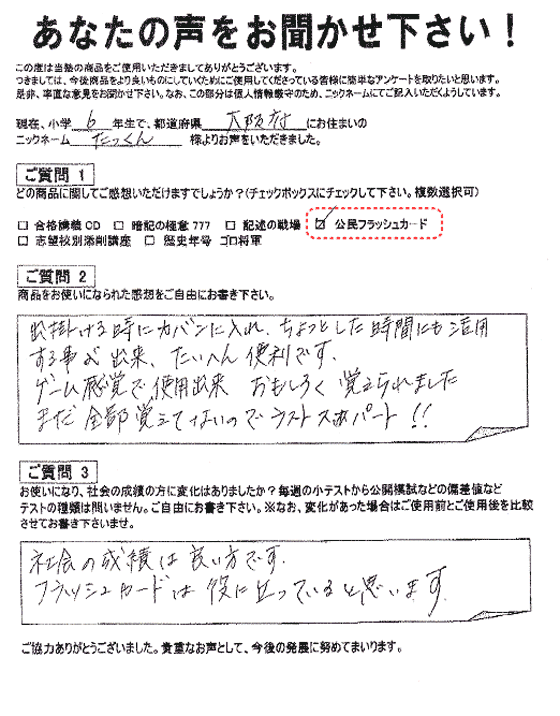 あなたの声をお聞かせ下さい！
この度は当塾の商品をご使用いただきましてありがとうございます。
つきましては、今後商品をより良いものにしていくためにご使用してくださっている皆様に簡単なアンケートを取りたいと思います。
是非、率直な意見をお聞かせ下さい。なお、この部分は個人情報厳守のため、ニックネームにてご記入いただくようしています。
現在、小学 6 年生で、都道府県 大阪府 にお住まいの
ニックネーム たっくん 様よりお声をいただきました。
ご質問 1
どの商品に関してご感想いただけますでしょうか？(チェックボックスにチェックして下さい。複数選択可)
□ 合格講義CD □ 暗記の極意777 □ 記述の戦場 ☑ 公民フラッシュカード
□ 志望校別添削講座 □ 歴史年号 ゴロ将軍
ご質問 2
商品をお使いになられた感想をご自由にお書き下さい。
出掛ける時にカバンに入れ、ちょっとした時間にも活用
する事が出来、たいへん便利です。
ゲーム感覚で使用出来 おもしろく覚えられました
まだ全部覚えてないのでラストスパート!!
ご質問 3
お使いになり、社会の成績の方に変化はありましたか？毎週の小テストから公開模試などの偏差値など
テストの種類は問いません。ご自由にお書き下さい。※なお、変化があった場合はご使用前とご使用後を比較
させてお書き下さいませ。
社会の成績は良い方です。
フラッシュカードは役に立っていると思います。
ご協力ありがとうございました。貴重なお声として、今後の発展に努めてまいります。